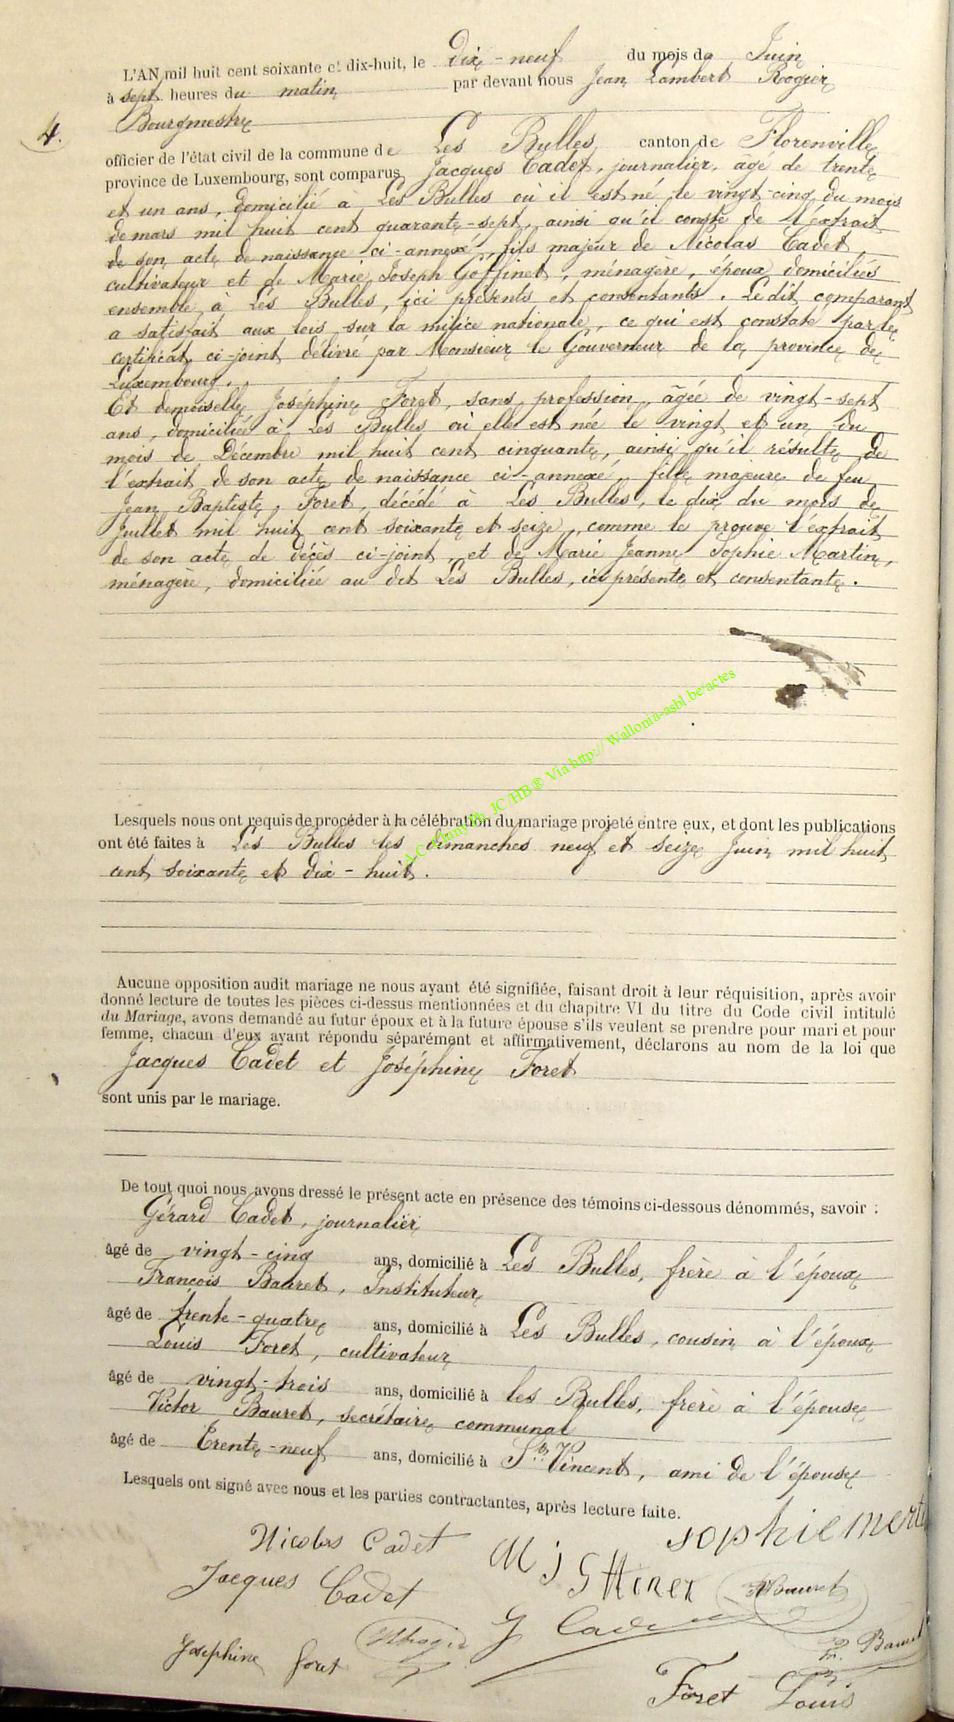 L'AN mil huit cent soixante et dix-huit, le dix-neuf du mois de Juin
à sept heures du matin par devant nous Jean Lambert Rogier
Bourgmestre
4.
officier de l'état civil de la commune de Les Bulles, canton de Florenville,
province de Luxembourg, sont comparus Jacques Cadet, journalier, âgé de trente
et un ans, domicilié à Les Bulles où il est né le vingt-cinq du mois
de mars mil huit cent quarante-sept, ainsi qu'il conste de l'extrait
de son acte de naissance ci-annexé, fils majeur de Nicolas Cadet,
cultivateur et de Marie Joseph Goffinet, ménagère, époux domiciliés
ensemble à Les Bulles, ici présents et consentants. Le dit comparant
a satisfait aux lois sur la milice nationale, ce qui est constaté par le
certificat ci-joint délivré par Monsieur le Gouverneur de la province de
Luxembourg.
Et demoiselle Joséphine Foret, sans profession, âgée de vingt-sept
ans, domiciliée à Les Bulles où elle est née le vingt et un du
mois de Décembre mil huit cent cinquante, ainsi qu'il résulte de
l'extrait de son acte de naissance ci-annexé, fille majeure de feu
Jean Baptiste Foret, décédé à Les Bulles, le dix du mois de
Juillet mil huit cent soixante et seize, comme le prouve l'extrait
de son acte de décès ci-joint, et de Marie Jeanne Sophie Martin,
ménagère, domiciliée au dit Les Bulles, ici présente et consentante.
Via http:// Wallonia-asbl.be/actes
Lesquels nous ont requis de procéder à la célébration du mariage projeté entre eux, et dont les publications
ont été faites à Les Bulles les dimanches neuf et seize Juin mil huit
cent soixante et dix-huit.
Aucune opposition audit mariage ne nous ayant été signifiée, faisant droit à leur réquisition, après avoir
donné lecture de toutes les pièces ci-dessus mentionnées et du chapitre VI du titre du Code civil intitulé
du Mariage, avons demandé au futur époux et à la future épouse s'ils veulent se prendre pour mari et pour
femme, chacun d'eux ayant répondu séparément et affirmativement, déclarons au nom de la loi que
Jacques Cadet et Joséphine Foret
sont unis par le mariage.
De tout quoi nous avons dressé le présent acte en présence des témoins ci-dessous dénommés, savoir :
Gérard Cadet, journalier
âgé de vingt-cinq ans, domicilié à Les Bulles, frère à l'époux
François Bauret, Instituteur
âgé de trente-quatre ans, domicilié à Les Bulles, cousin à l'époux
Louis Foret, cultivateur
âgé de vingt-trois ans, domicilié à les Bulles, frère à l'épouse
Victor Bauret, secrétaire communal
âgé de Trente-neuf ans, domicilié à St Vincent, ami de l'épouse
Lesquels ont signé avec nous et les parties contractantes, après lecture faite.
Nicolas Cadet
sophie
M J
Jacques Cadet
Bauret
G Cadet
Josephine foret
Foret Louis